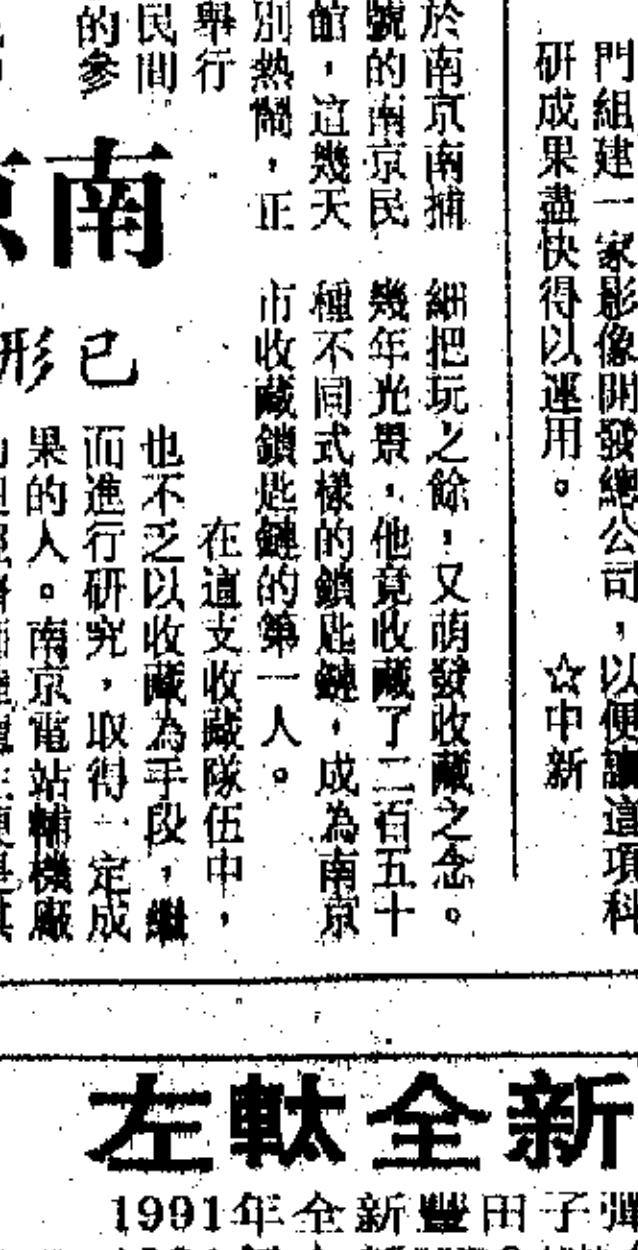 門組建一家影像開發總公司，以便讓這項科
研成果盡快得以運用。　☆中新
於南京南捕
號的南京民
館，這幾天
別熱鬧，正
舉行
民間
的參
南
已形
細把玩之餘，又萌發收藏之念。
幾年光景，他竟收藏了二百五十
種不同式樣的鎖匙鏈，成為南京
市收藏鎖匙鏈的第一人。
在這支收藏隊伍中，
也不乏以收藏為手段，繼
而進行研究，取得一定成
果的人。南京電站輔機廠
左軚全新
1991年全新豐田子彈